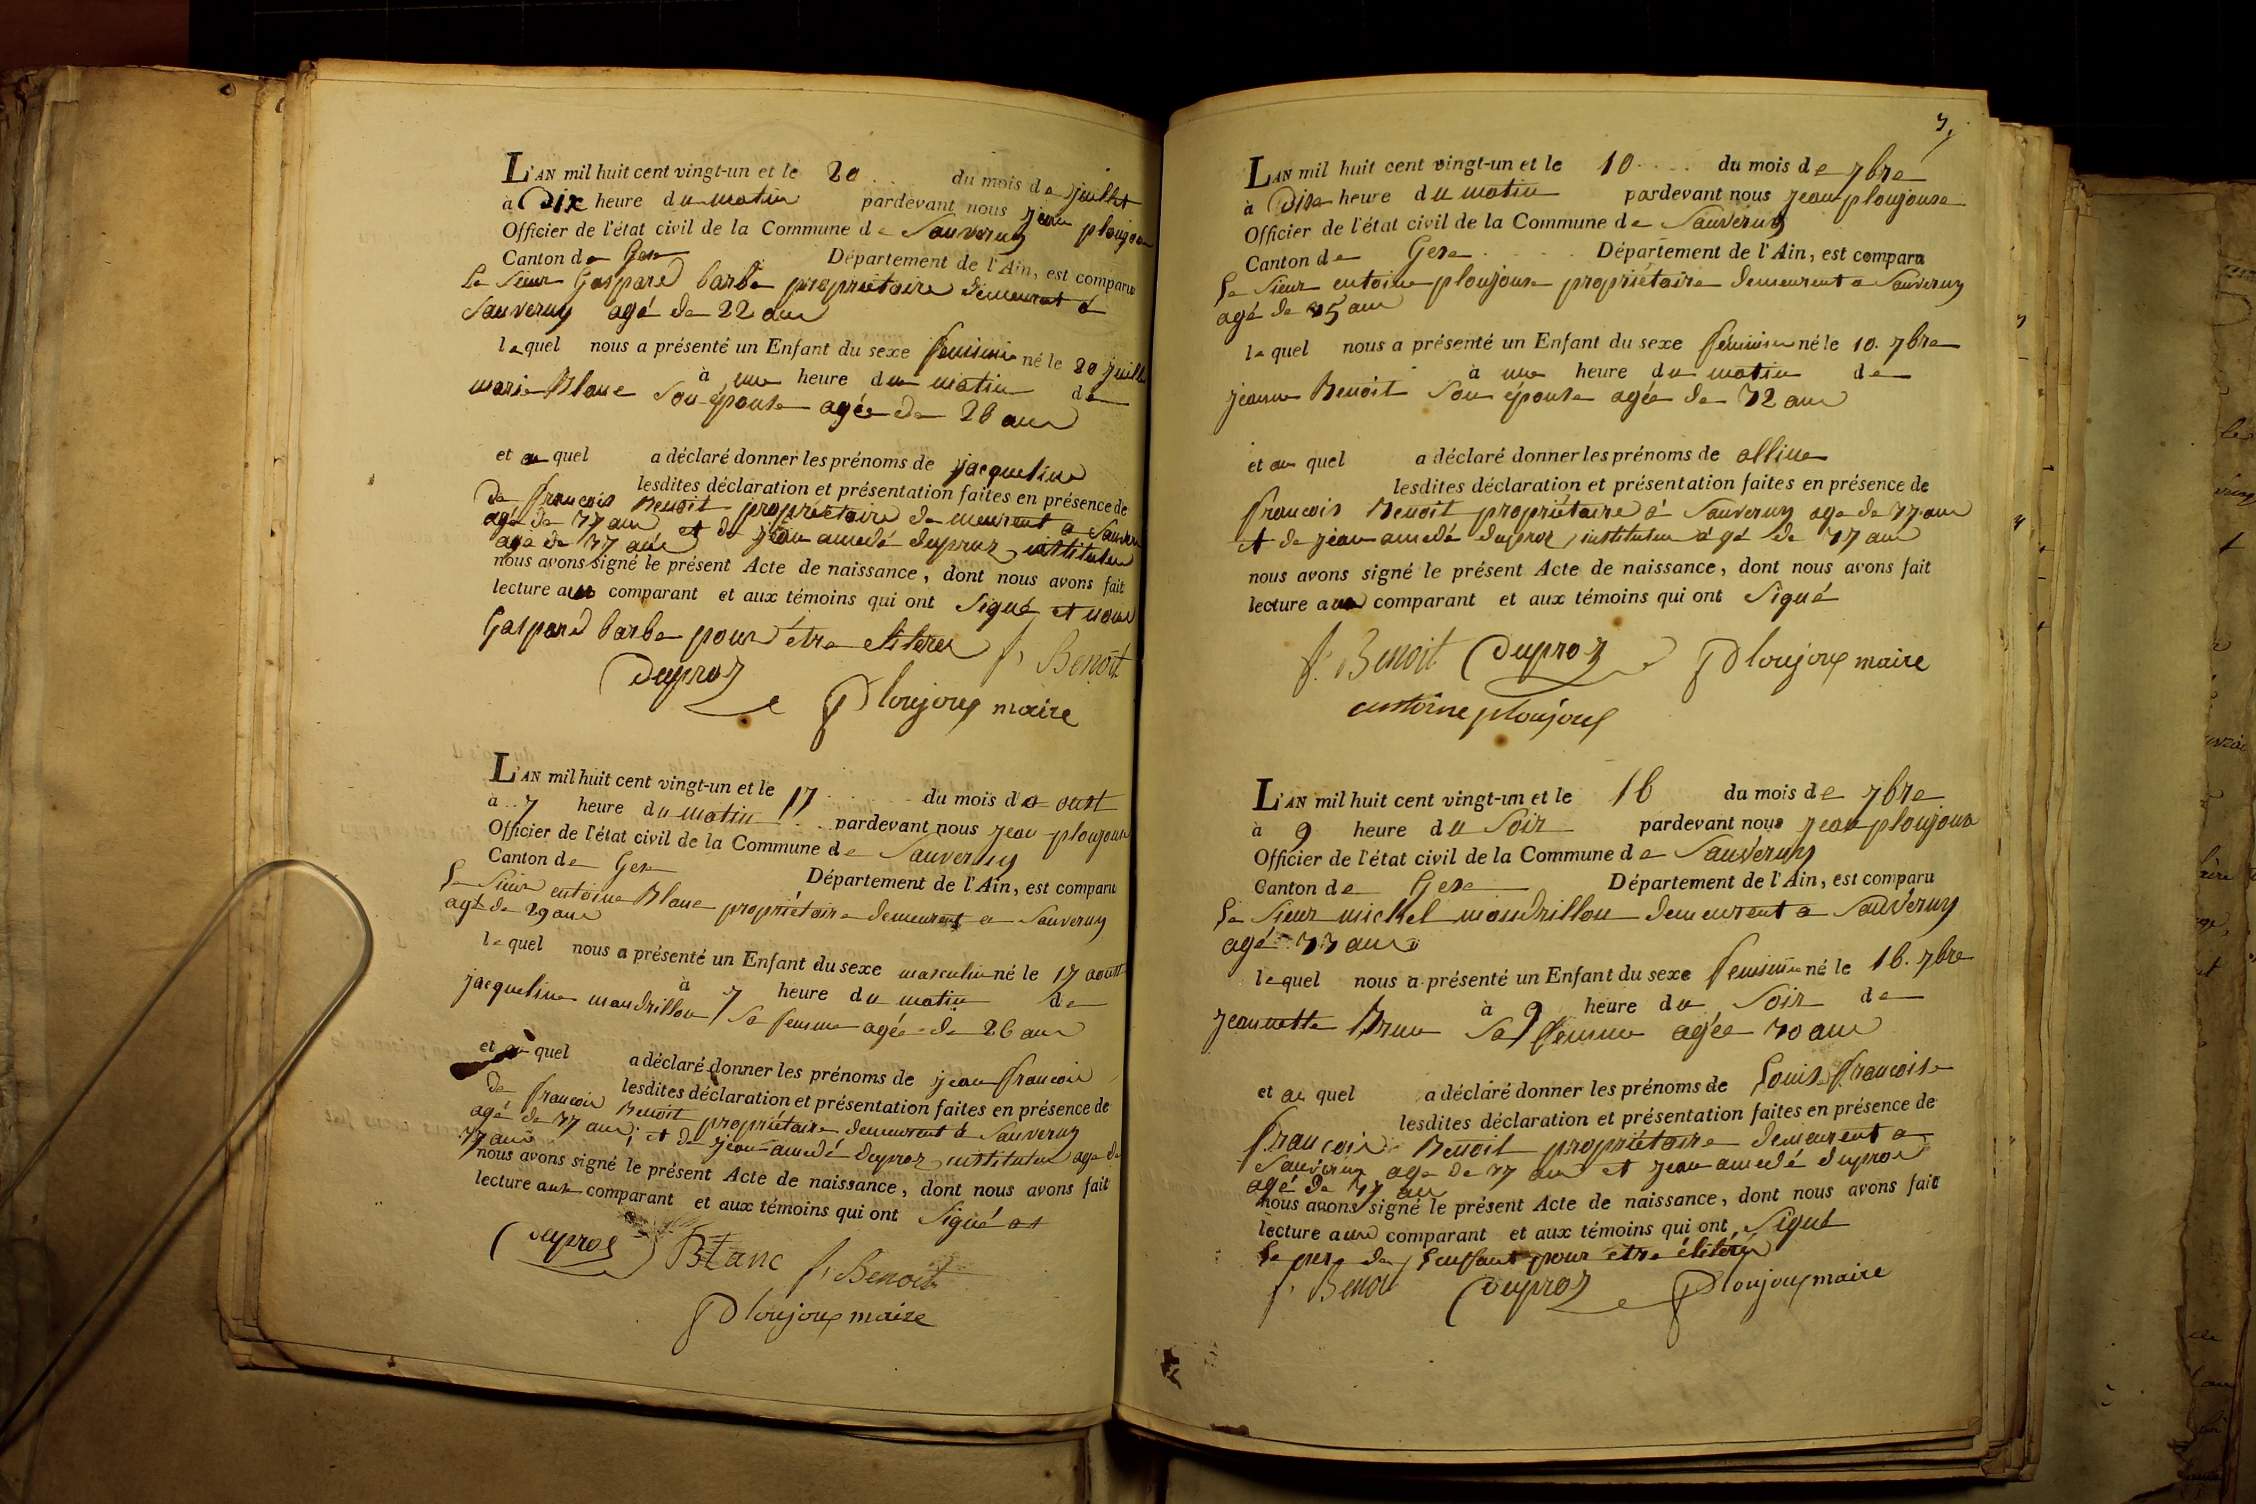 L'AN mil huit cent vingt-un et le 20 du mois de juillet
à Dix heure du matin pardevant nous jean ploujoux
Officier de l'état civil de la Commune de Sauverny
Canton de Gex Département de l'Ain, est comparu
Le Sieur Gaspard barbe propriétaire demeurant a
Sauverny agé de 22 ans
lequel nous a présenté un Enfant du sexe feminin né le 20 juillet
à une heure du matin de
marie Blanc Son épouse agée de 26 ans
et au quel a déclaré donner les prénoms de jacqueline
lesdites déclaration et présentation faites en présence de
De francois Benoit propriétaire demeurent a Sauverny
agé de 37 ans et de jean amedé duproz instituteur
age de 37 ans
nous avons signé le présent Acte de naissance, dont nous avons fait
lecture aux comparant et aux témoins qui ont Signé et non
Gaspard barbe pour être elitéré f. Benoit
Duproz
Ploujoux maire
L'AN mil huit cent vingt-un et le 17 du mois d'a oust
à 7 heure du matin pardevant nous jean ploujoux
Officier de l'état civil de la Commune de Sauverny
Canton de Gex Département de l'Ain, est comparu
Le Sieur entoine Blanc propriétaire demeurent a Sauverny
agé de 29 ans
lequel nous a présenté un Enfant du sexe masculin né le 17 aoust
à 7 heure du matin de
jacqueline mandrillon Sa femme agée de 26 ans
et au quel a déclaré donner les prénoms de jean francois
lesdites déclaration et présentation faites en présence de
De francois Benoit propriétaire demeurent a Sauverny
agé de 37 ans; et de jean amedé duproz instituteur age de
37 ans
nous avons signé le présent Acte de naissance, dont nous avons fait
lecture aux comparant et aux témoins qui ont Signé
Duproz Blanc f. Benoit
Ploujoux maire
3
L'AN mil huit cent vingt-un et le 10 du mois de 7bre
à Dixe heure du matin pardevant nous jean ploujoux
Officier de l'état civil de la Commune de Sauverny
Canton de Gex Département de l'Ain, est comparu
Le Sieur entoine ploujoux propriétaire demeurent a Sauverny
agé de 35 ans
lequel nous a présenté un Enfant du sexe féminin né le 10. 7bre
à une heure du matin de
jeanne Benoit Son épouse agée de 32 ans
et au quel a déclaré donner les prénoms de alline
lesdites déclaration et présentation faites en présence de
francois Benoit propriétaire a Sauverny age de 37 ans
et de jean amedé duproz instituteur agé de 37 ans
nous avons signé le présent Acte de naissance, dont nous avons fait
lecture aux comparant et aux témoins qui ont Signé
f. Benoit Duproz Ploujoux maire
antoine ploujoux
L'AN mil huit cent vingt-un et le 16 du mois de 7bre
à 9 heure du Soir pardevant nous jean ploujoux
Officier de l'état civil de la Commune de Sauverny
Canton de Gex Département de l'Ain, est comparu
Le Sieur michel mandrillon demeurent a Sauverny
agé 33 ans
lequel nous a présenté un Enfant du sexe feminin né le 16. 7bre
à 9 heure du Soir de
jeannette Brun Sa femme agée 30 ans
et au quel a déclaré donner les prénoms de Louise francoise
lesdites déclaration et présentation faites en présence de
francois Benoit propriétaire demeurent a
Sauverny age de 37 ans et jean amedé duproz
agé de 37 ans
nous avons signé le présent Acte de naissance, dont nous avons fait
lecture aux comparant et aux témoins qui ont Signé
Le pere de Lenfant pour etre élitéré
f. Benoit Duproz Ploujoux maire